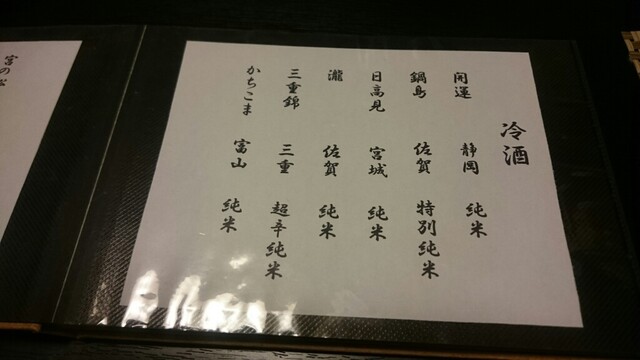 冷酒
開運 静岡 純米
鍋島 佐賀 特別純米
日高見 宮城 純米
瀧 佐賀 純米
三重錦 三重 超辛純米
かちこま 富山 純米
宮の松